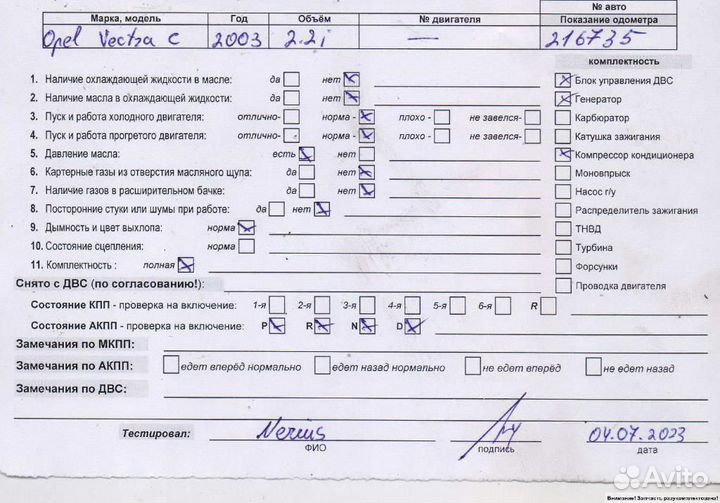 № авто
Марка, модель Год Объём № двигателя Показание одометра
Opel Vectra C 2003 2.2i — 216735
комплектность
1. Наличие охлаждающей жидкости в масле: да нет Блок управления ДВС
2. Наличие масла в охлаждающей жидкости: да нет Генератор
3. Пуск и работа холодного двигателя: отлично- норма - плохо - не завелся- Карбюратор
4. Пуск и работа прогретого двигателя: отлично- норма - плохо - не завелся- Катушка зажигания
5. Давление масла: есть нет Компрессор кондиционера
6. Картерные газы из отверстия масляного щупа: да нет Моновпрыск
7. Наличие газов в расширительном бачке: да нет Насос г/у
8. Посторонние стуки или шумы при работе: да нет Распределитель зажигания
9. Дымность и цвет выхлопа: норма ТНВД
10. Состояние сцепления: норма Турбина
11. Комплектность : полная Форсунки
Снято с ДВС (по согласованию!): Проводка двигателя
Состояние КПП - проверка на включение: 1-я 2-я 3-я 4-я 5-я 6-я R
Состояние АКПП - проверка на включение: P R N D
Замечания по МКПП:
Замечания по АКПП: едет вперёд нормально едет назад нормально не едет вперёд не едет назад
Замечания по ДВС:
Тестировал: Nerius 04.07.2023
ФИО подпись дата
Avito
Внимание! Запчасть, разукомплектована!